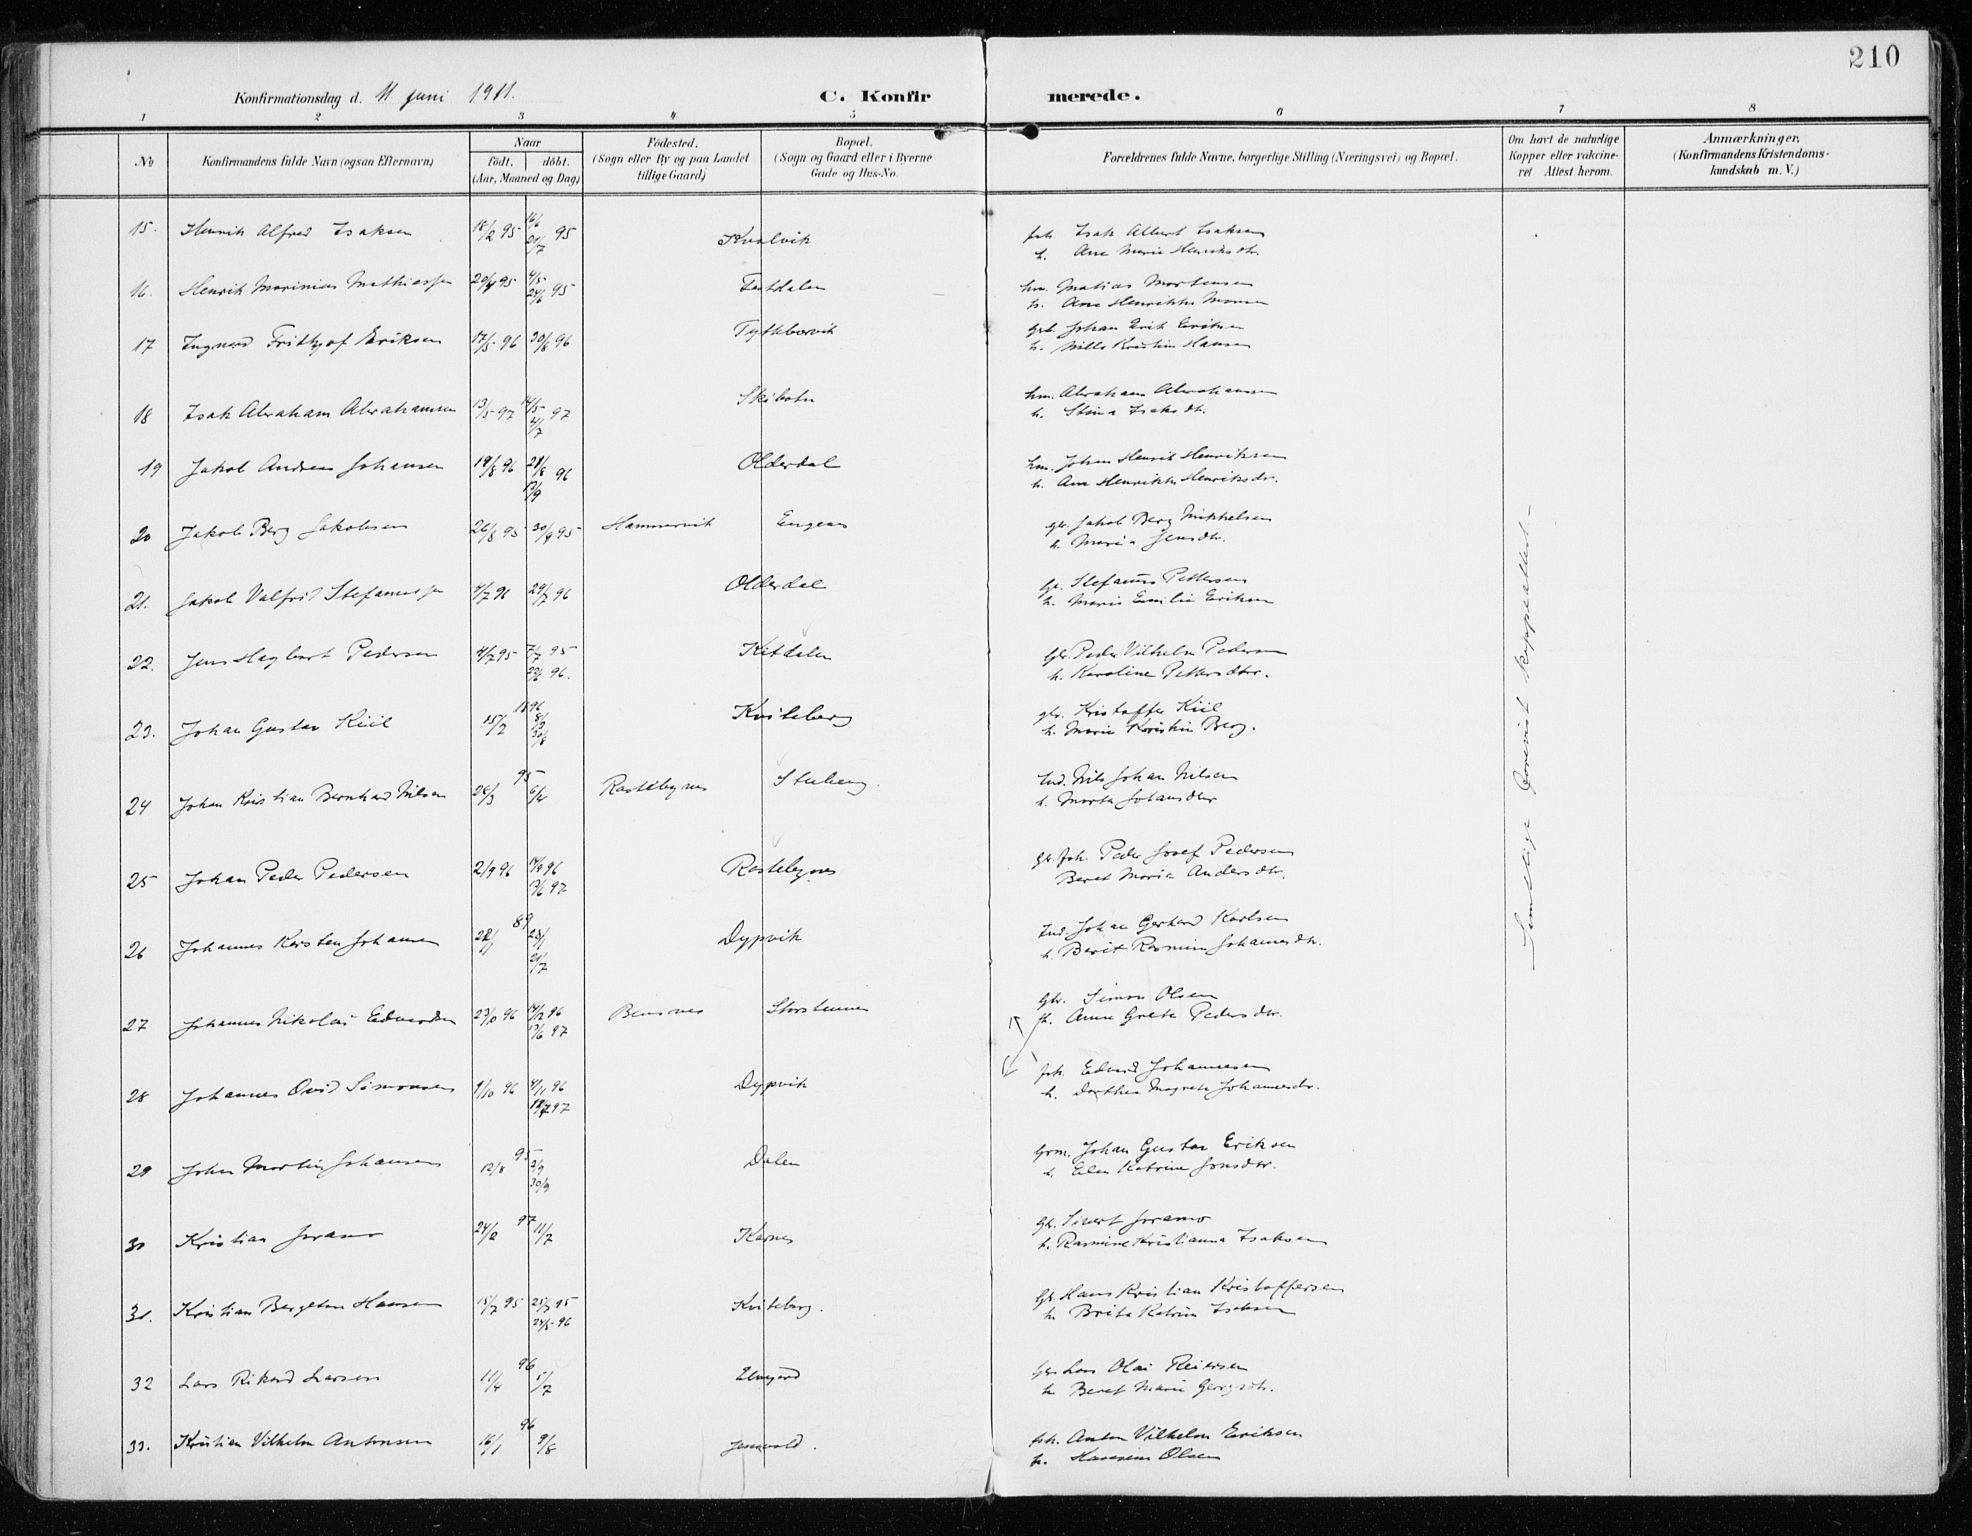 210
Konfirmationsdag d. 11 juni 1911.
C. Konfirmerede.
1 2 3 4 5 6 7 8
No
Konfirmandens fulde Navn (ogsaa Efternavn)
Naar
födt. döbt.
(Aar, Maaned og Dag)
Födested.
(Sogn eller By og paa Landet
tillige Gaard)
Bopæl.
(Sogn og Gaard eller i Byerne
Gade og Hus-No.
Forældrenes fulde Navne, borgerlige Stilling (Næringsvei) og Bopæl.
Om havt de naturlige
Kopper eller vakcine-
ret Attest herom.
Anmærkninger,
(Konfirmandens Kristendoms-
kundskab m. V.)
15. Henrik Alfred Isaksen 18/2 95 16/6 95 Kvalvik fsk. Isak Albert Isaksen
21/7 h. Ane Marie Henriksdtr.
16. Henrik Marinius Mathiassen 95 4/5 95 hm. Matias Mortensen
24/6 h. Ane Henrikke Monsen
17 Ingvard Frithjof Eriksen 17/5 96 30/8 96 Gbr. Johan Erik Eriksen
h. Kristin Hansen
18 Isak Abraham Abrahamsen 13/5 97 14/5 97 Skibotn hm. Abraham Abrahamsen
4/7 h. Stina Isaksdtr.
19 Jakob Andreas Johansen 19/8 96 96 Olderdal hm. Johan Henrik Henriksen
13/9 h. Ane Henrikke Henriksdr.
20 Jakob Berg Jakobsen 26/8 95 30/9 95 Hamnervik Engenes gbr. Jakob Berg Mikkelsen
h. Maria Jensdtr.
21. Jakob Valfrid Stefanussen 4/7 96 29/7 96 Olderdal Gbr. Stefanus Pettersen
h. Marie Emilie Eriksen
22. Jens Hagbart Pedersen 4/7 95 7/7 95 Kitdalen Gbr. Peder Vilhelm Pedersen
96. h. Karoline Pettersdtr.
23. Johan Gustav Kiil 15/2 1896 8/3 Kviteberg gbr. Kristoffer Kiil
30/8 h. Marie Kristin Berg.
24 Johan Kristian Bernhard Nilsen 28/3 95 6/4 Rastebynes Stubeng. Ind. Nils Johan Nilsen
h. Marta Johansdtr
25 Johan Peder Pedersen 2/9 96 96 Rastebynes gbr. fsk. Peder Josef Pedersen
13/6 97 Beret Maria Andersdtr.
26 Johannes Karsten Johansen 22/1 89 28/1 Dypvik Ind. Johan Gerhard Karlsen
21/7 h. Berit Rasmine Johannesdtr.
27 Johannes Nikolai Edvardsen 23/10 96 14/12 96 Bensnes Storsteinnes Gbr. Simon Olsen
13/6 97 h. Anne Grete Pedersdtr.
28 Johannes Ovid Simonsen 9/10 96 4/11 96 Dypvik fsk. Edvard Johannesen
97 h. Dorthea Magrete Johannesdr.
29 Johan Martin Johansen 12/8 95 3/9 Dalen Grm. Johan Gustav Eriksen
30/9 h. Elen Katrine Jonsdtr.
30 Kristian Joramo 24/2 97 11/7 Karnes Gbr. Sivert Joramo
h. Rasmine Kristianna Isaksen
31. Kristian Bergeton Hansen 15/7 95 95 Kviteberg. Gbr. Hans Kristian Kristoffersen
24/5 96 h. Brita Katrine Isaksen
32 Lars Rikard Larsen 11/4 96 5/7 Elvejord Gbr. Lars Olai Reiersen
h. Beret Marie Georgsdtr.
33. Kristian Vilhelm Antonsen 16/1 96 9/8 Jensvold. fsk. Anton Vilhelm Eriksen
h. Hansine Olsen
Samtlige forevist koppeattest